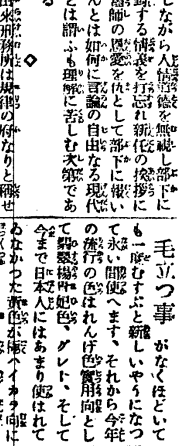 しながら人情道徳を無視し部下に
する情義を打忘れ新任の挨拶に
師の恩愛を仇として部下に報い
んとは如何に言論の自由なる現代
とは謂ふも理解に苦しむ次第であ
◇
出来刑務所は規律の府なりと称せ
毛立つ事がなくほどいて
も一度むすぶと新しいやうになつ
て永い間使へます、それから今年
の流行の色はれんげ色實用向とし
て翡翠楊妃色、グレト、そして
今まで日本人にはあまり使はれて
ゐなかつた黄色が極ハイカラ向に